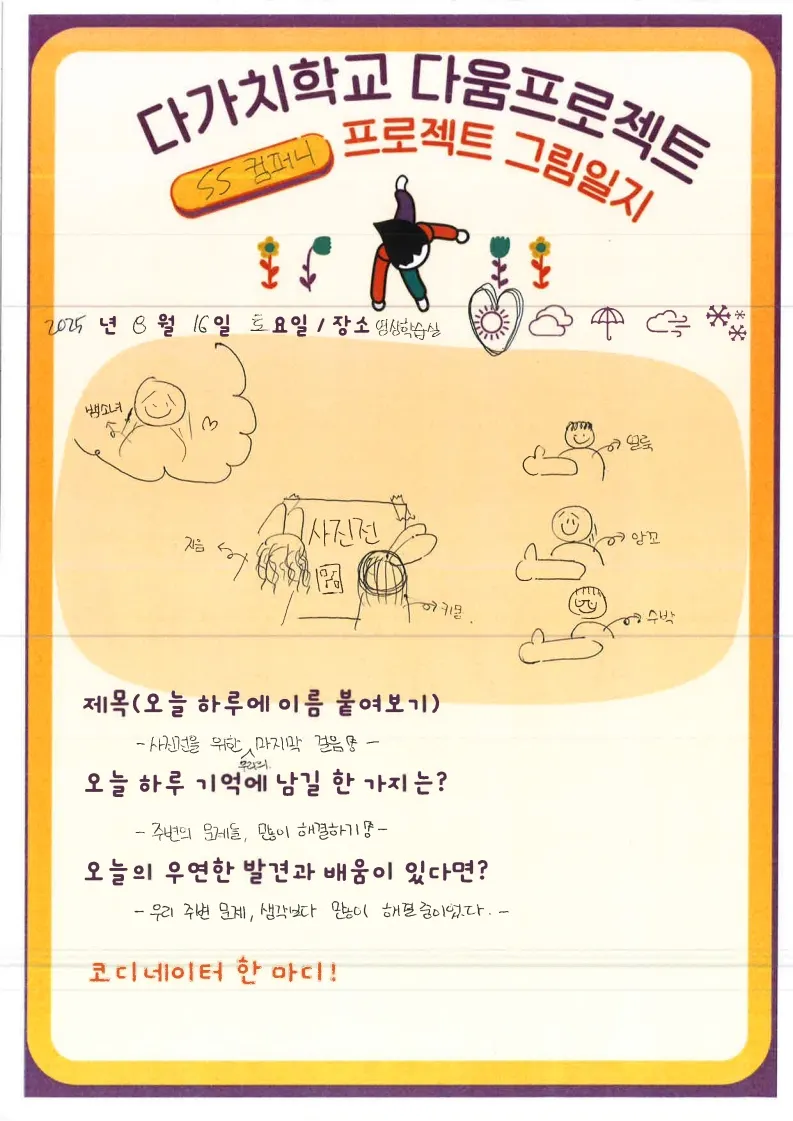 다가치학교 다움프로젝트
SS 컴퍼니 프로젝트 그림일지
2025 년 8 월 16 일 토 요일 / 장소 영상학습실
뱀소녀
얼룩
사진전
지음
앙꼬
키몽
수박
제목(오늘 하루에 이름 붙여보기)
- 사진전을 위한 우리의 마지막 걸음 -
오늘 하루 기억에 남길 한 가지는?
- 주변의 문제들, 많이 해결하기 -
오늘의 우연한 발견과 배움이 있다면?
- 우리 주변 문제, 생각보다 많이 해결 중이었다. -
코디네이터 한 마디!